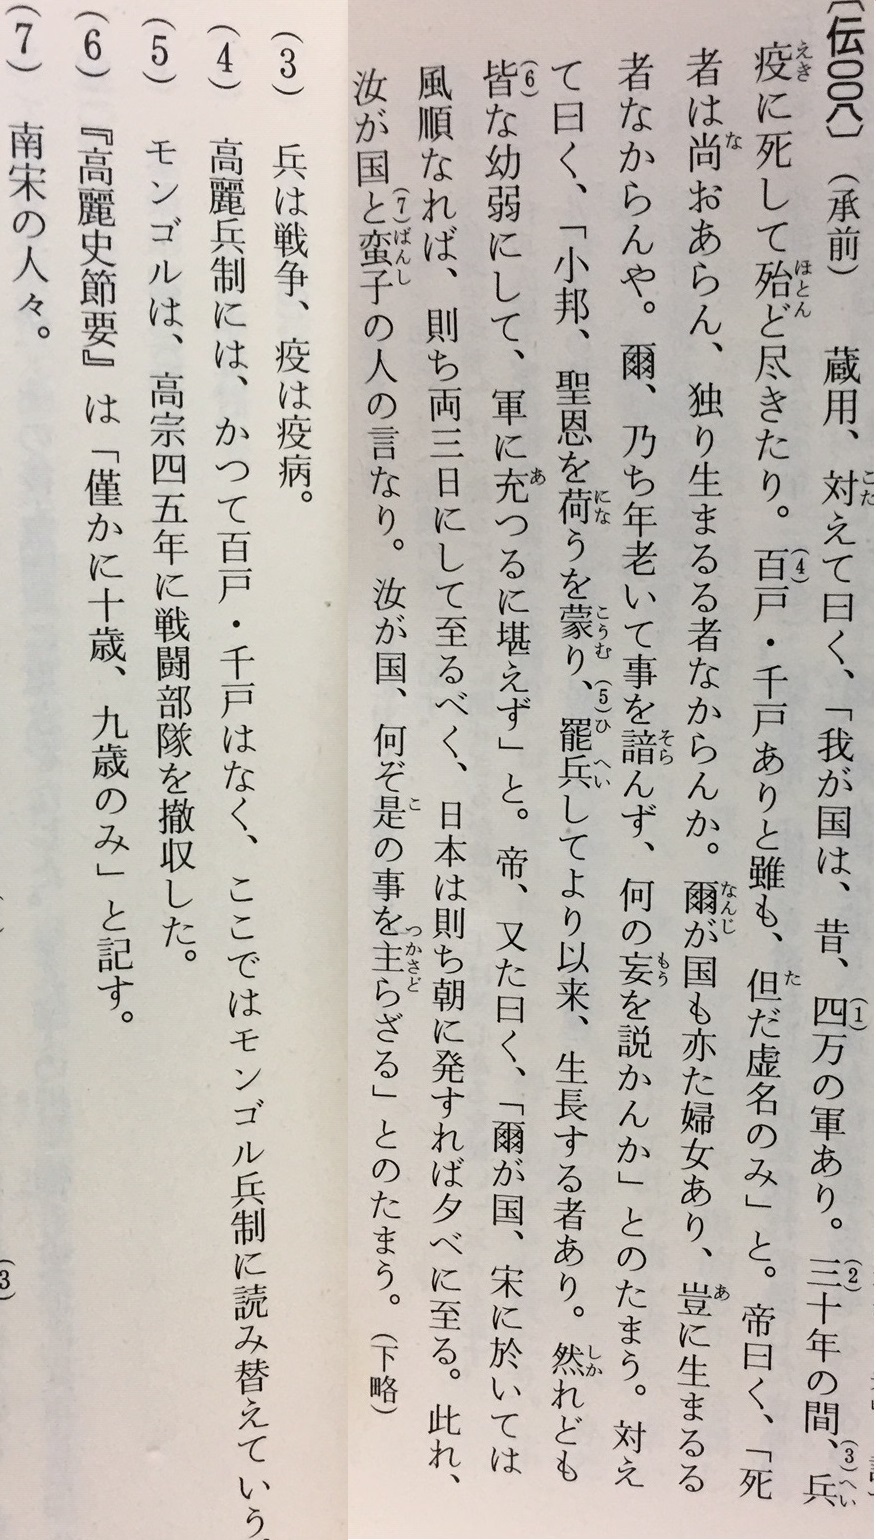 〔伝〇〇八〕（承前）　蔵用、対えて曰く、「我が国は、昔、四万の軍あり。三十年の間、兵
疫に死して殆ど尽きたり。百戸・千戸ありと雖も、但だ虚名のみ」と。帝曰く、「死
者は尚おあらん、独り生まるる者なからんか。爾が国も亦た婦女あり、豈に生まるる
者なからんや。爾、乃ち年老いて事を諳んず、何の妄を説かんか」とのたまう。対え
て曰く、「小邦、聖恩を荷うを蒙り、罷兵してより以来、生長する者あり。然れども
皆な幼弱にして、軍に充つるに堪えず」と。帝、又た曰く、「爾が国、宋に於いては
風順なれば、則ち両三日にして至るべく、日本は則ち朝に発すれば夕べに至る。此れ、
汝が国と蛮子の人の言なり。汝が国、何ぞ是の事を主らざる」とのたまう。（下略）
（3）　兵は戦争、疫は疫病。
（4）　高麗兵制には、かつて百戸・千戸はなく、ここではモンゴル兵制に読み替えていう。
（5）　モンゴルは、高宗四五年に戦闘部隊を撤収した。
（6）　『高麗史節要』は「僅かに十歳、九歳のみ」と記す。
（7）　南宋の人々。